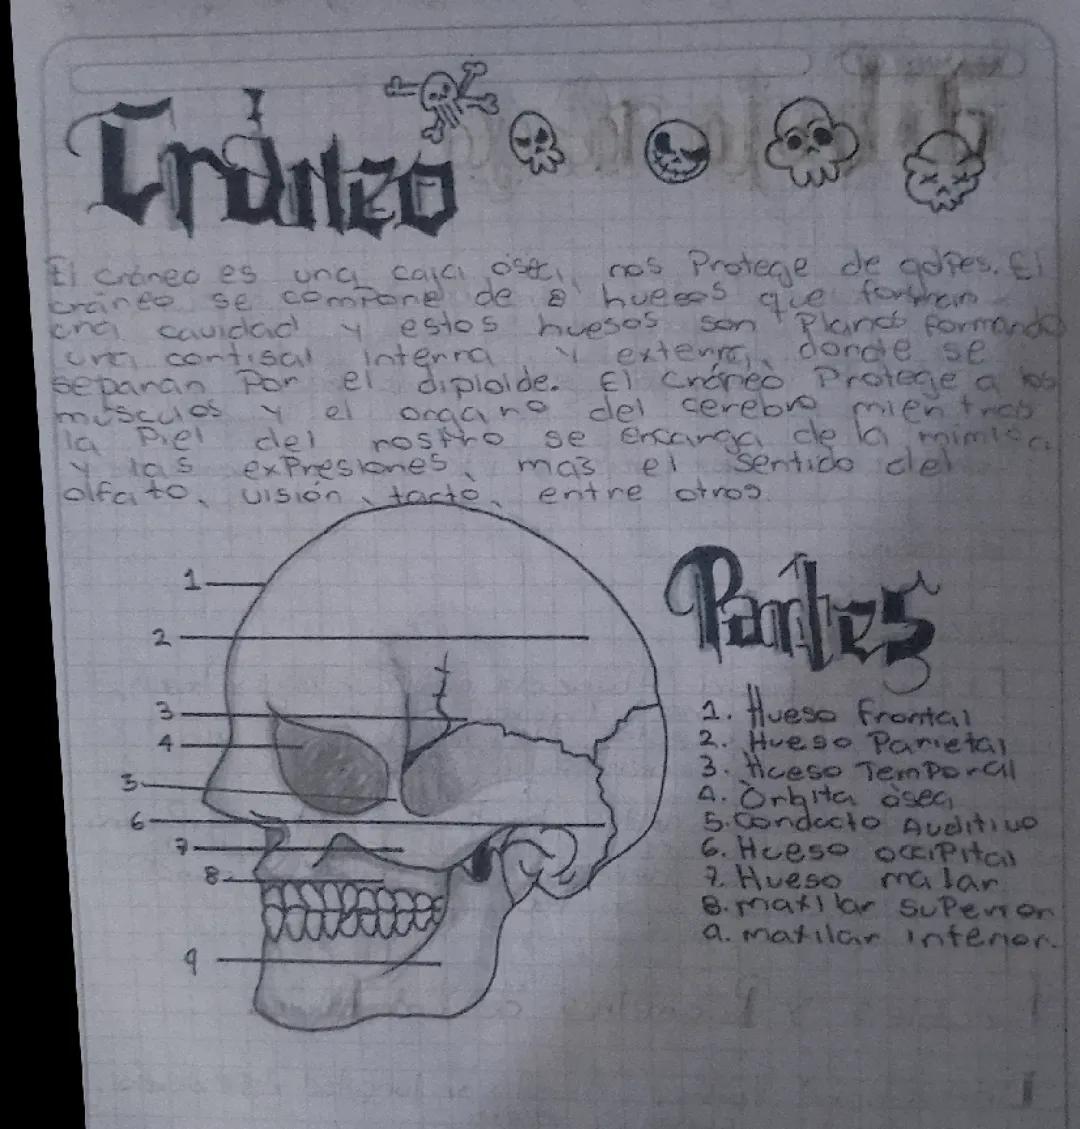 Cráneo
El cráneo es una caja ósea, nos Protege de golpes. El
cráneo se compone de 8 huesos que forman
una cavidad y estos huesos son Planos formando
una cortisal interna y externa, donde se
separan Por el diploide. El cráneo Protege a los
musculos y el organo del cerebro mientras
la Piel del rostro se encarga de la mimica
y las exPresiones, mas el sentido del
olfato, visión, tacto, entre otros
Partes
1
2
3
4
5
6
7
8
9
1. Hueso frontal
2. Hueso Parietal
3. Hueso TemPoral
4. Orbita ósea
5. Conducto Auditivo
6. Hueso occiPital
7. Hueso malar
8. maxilar superior
9. maxilar inferior.